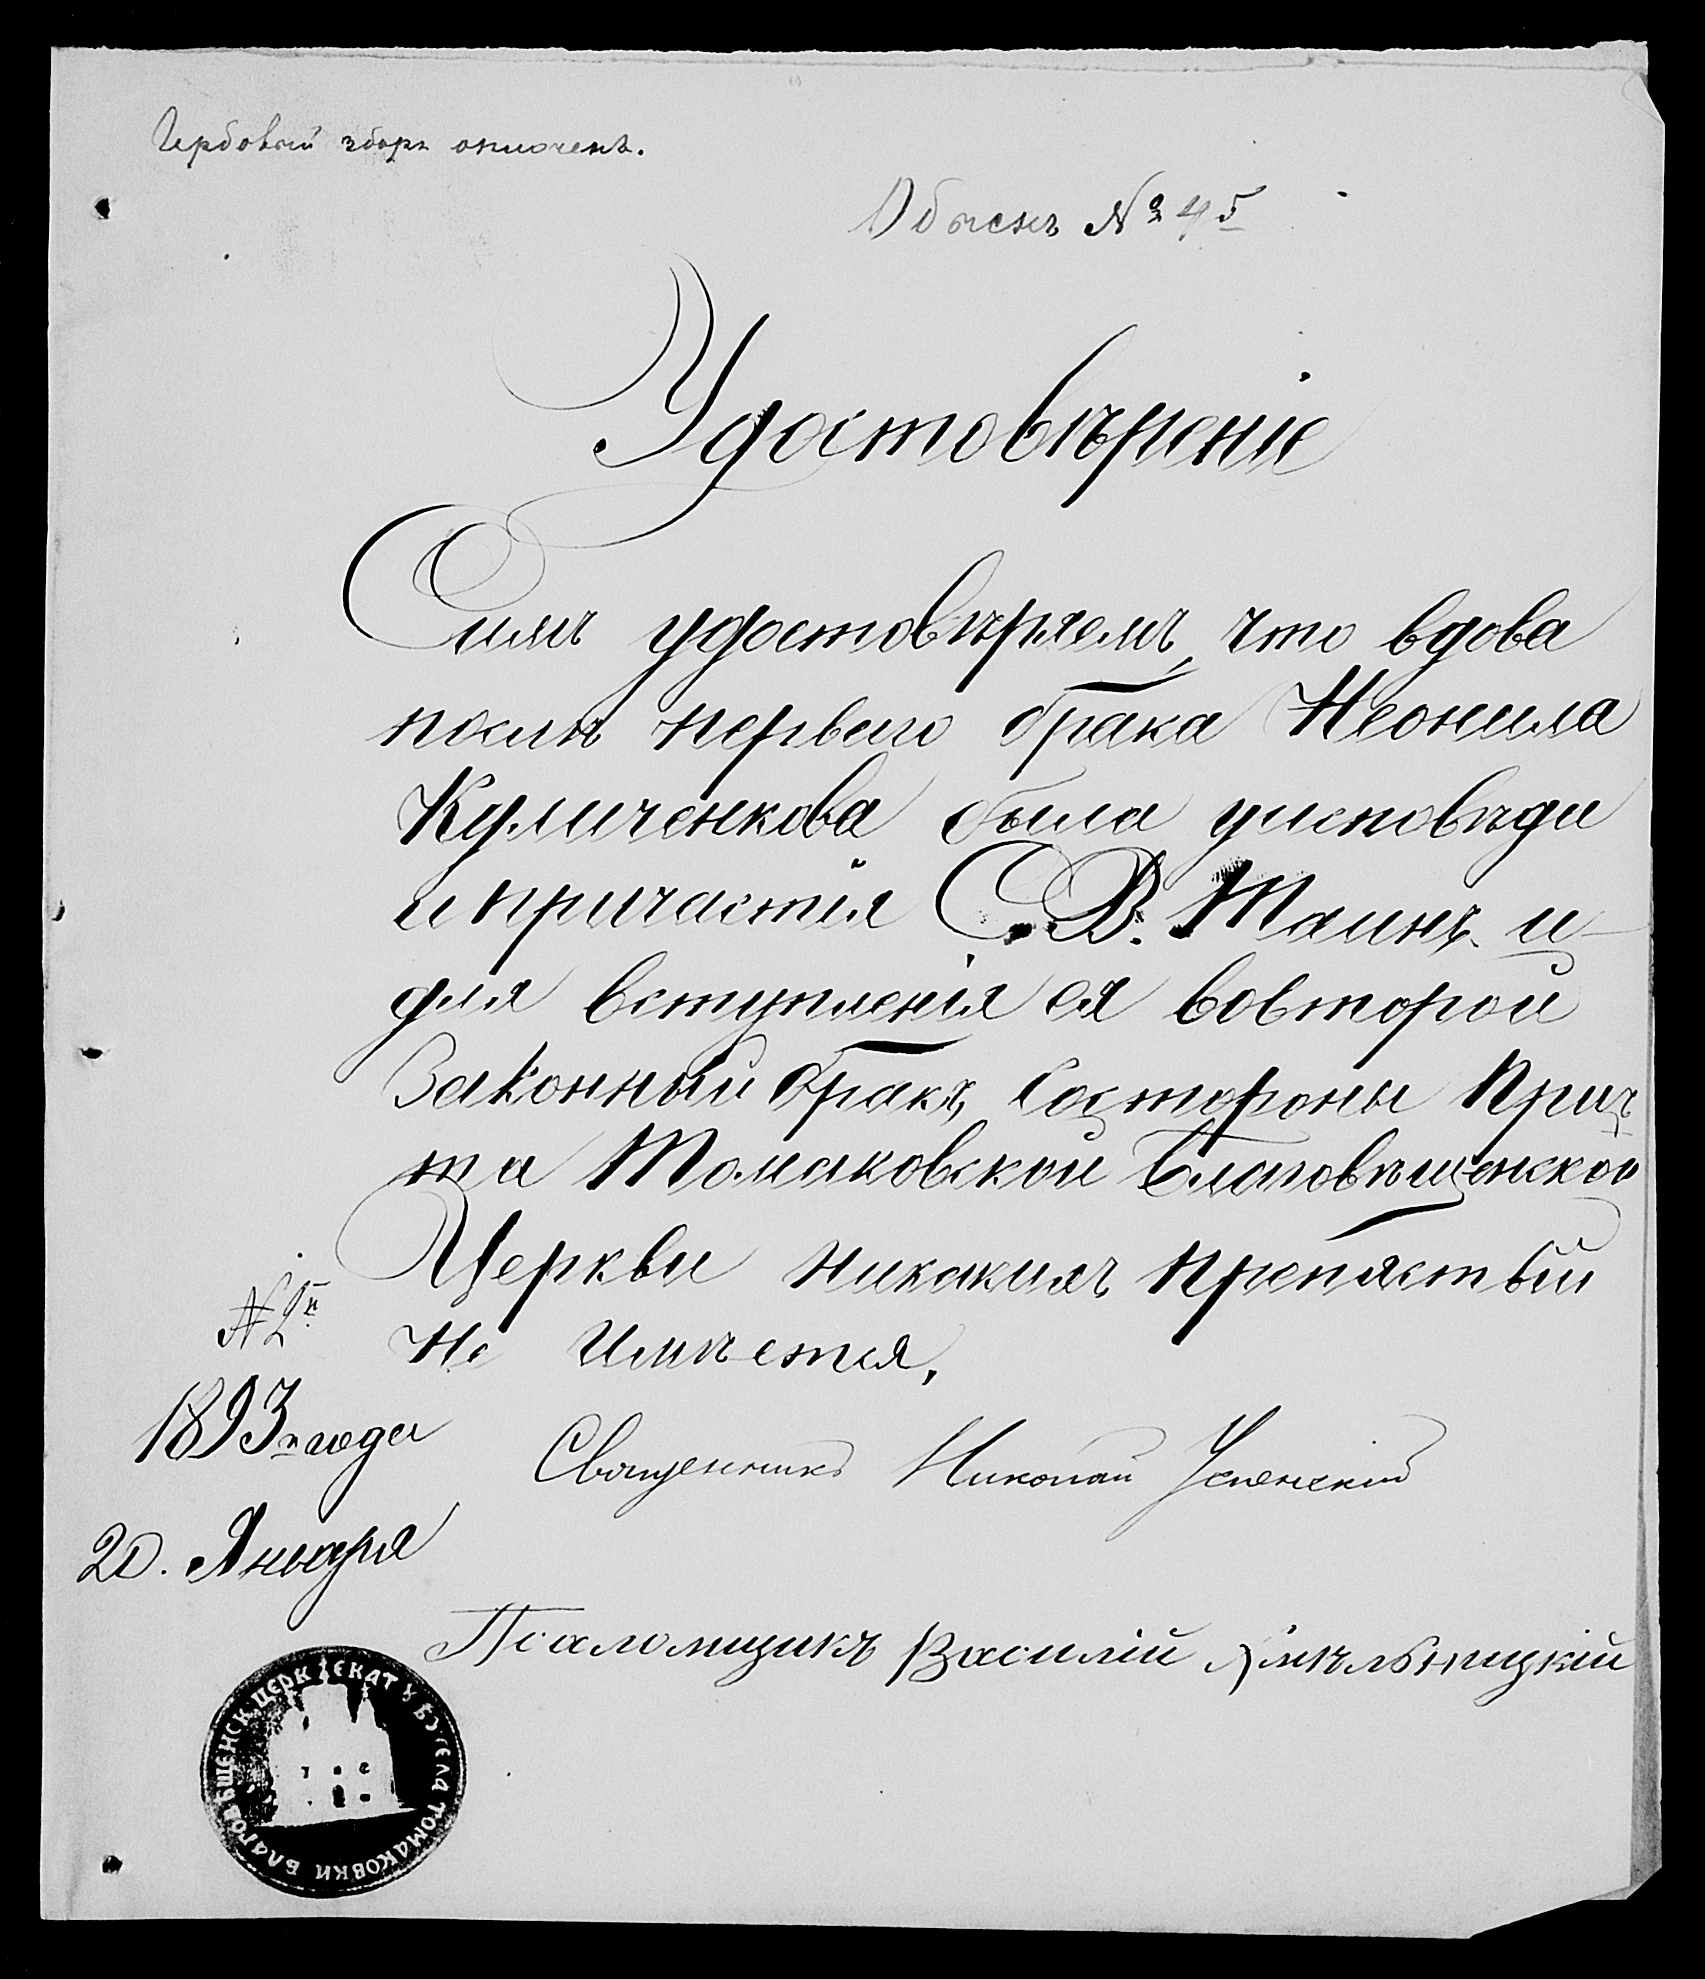 Гербовый зборъ оплоченъ.
Обыскъ № 45
Удостовѣреніе
Симъ удостовѣряемъ, что вдова
послѣ перваго брака Неонила
Куличенкова была уисповѣди
и причастія С. В. Таинъ и
для вступленія ея вовторой
Законный бракъ, состороны Прич
та Томаковской Благовѣщенской
Церкви никакихъ препяствій
Не Имѣется,
№
1893 года
20. Января
Священникъ Николай Успенскій
Псаломщикъ Василій Хмѣльницкій
БЛАГОВѢЩЕНСК ЦЕРК ЕКАТ У БУ СЕЛА ТОМАКОВКИ